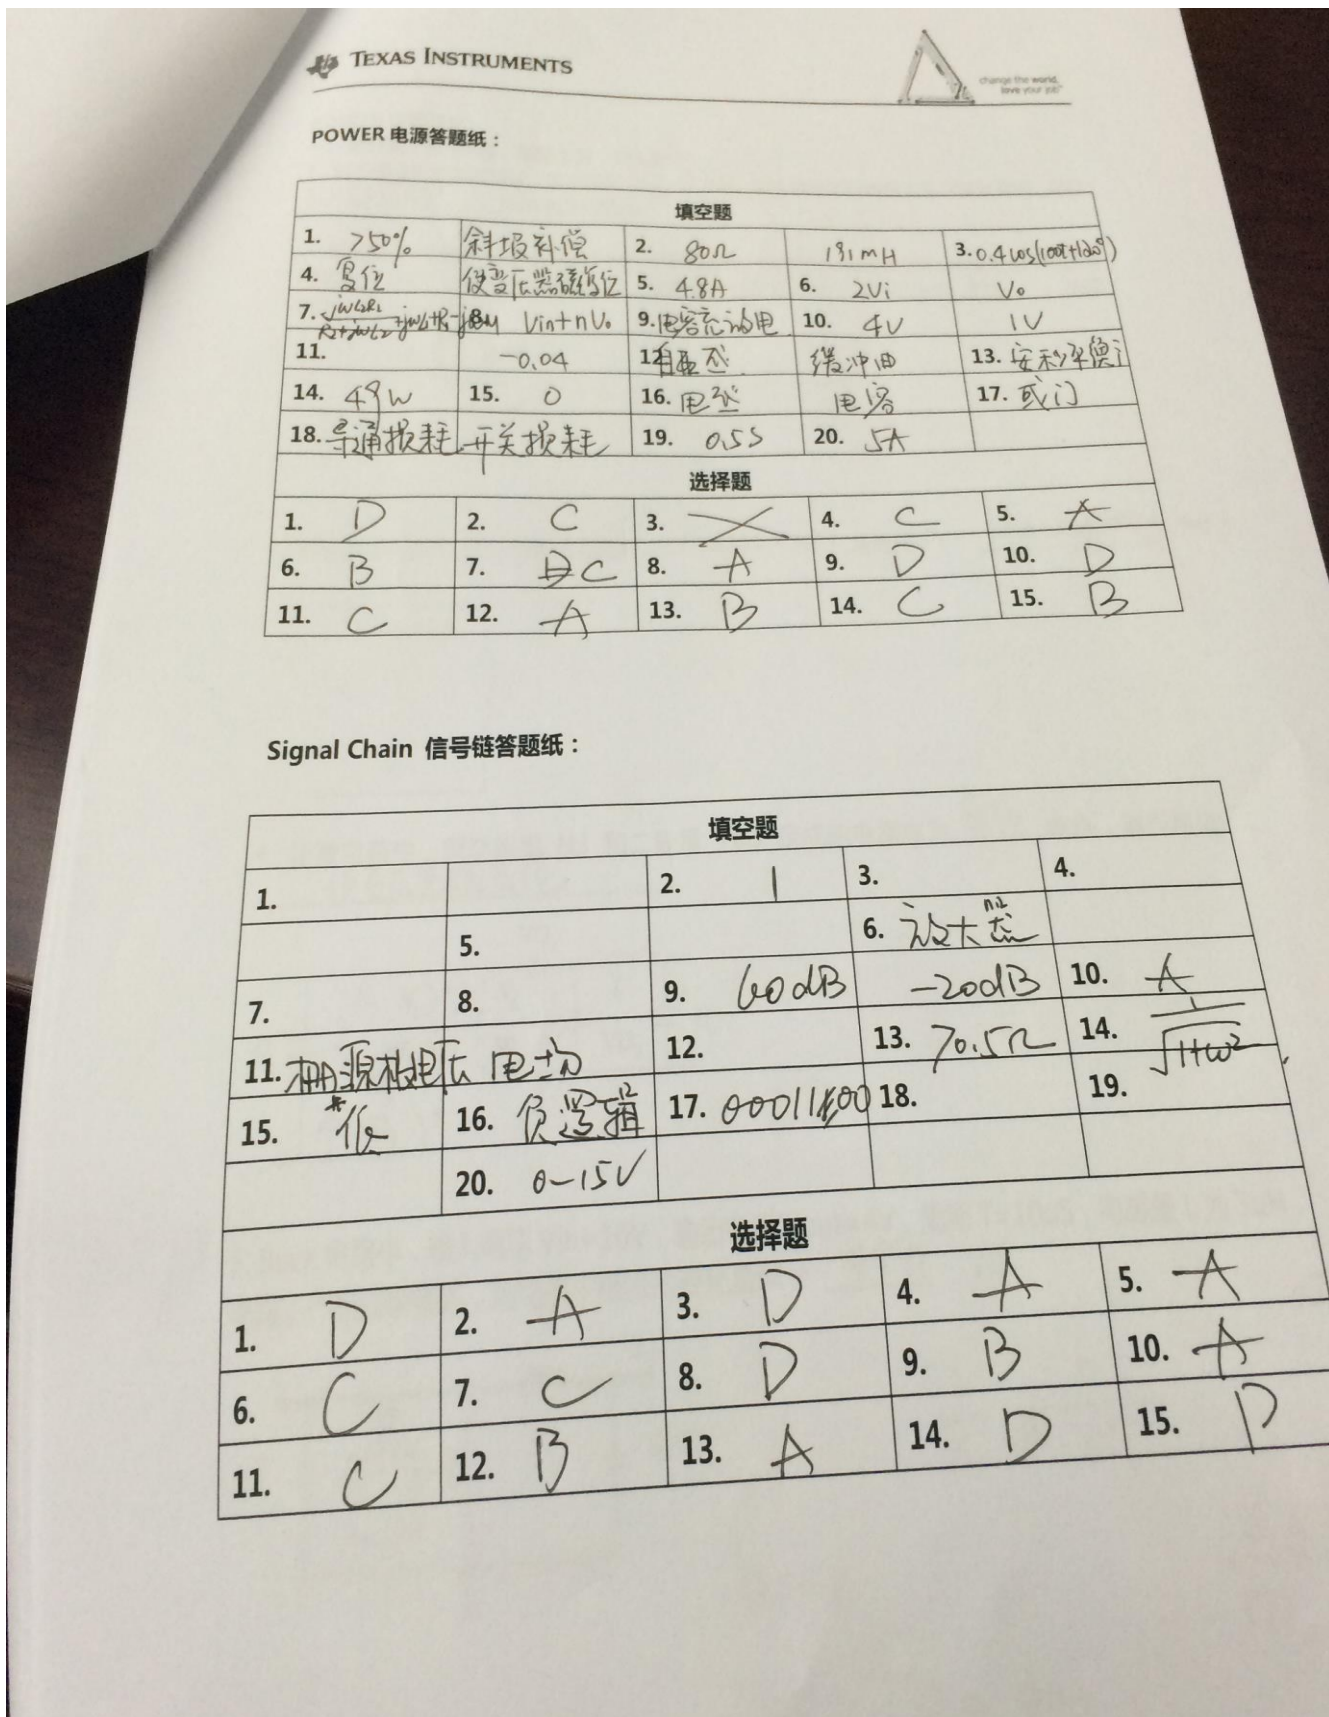 TEXAS INSTRUMENTS
change the world,
love your job"
POWER 电源答题纸：
填空题
1. >50% 斜坡补偿 2. 80Ω 191mH 3. 0.4cos(100t+120°)
4. 复位 使变压器磁复位 5. 4.8A 6. 2Vi Vo
7. 8. Vin+nVo 9. 10. 4V 1V
11. -0.04 12. 缓冲 13.
14. 49W 15. 0 16. 电感 电容 17. 或门
18. 导通损耗 开关损耗 19. 0.5S 20. 5A
选择题
1. D 2. C 3. 4. C 5. A
6. B 7. C 8. A 9. D 10. D
11. C 12. A 13. B 14. C 15. B
Signal Chain 信号链答题纸：
填空题
1. 2. 1 3. 4.
5. 6. 放大态
7. 8. 9. 60dB -20dB 10. A
11. 栅源极电压 电场 12. 13. 70.5Ω 14. 1/√(1+ω²)
15. 低 16. 负逻辑 17. 18. 19.
20. 0-15V
选择题
1. D 2. A 3. D 4. A 5. A
6. C 7. C 8. D 9. B 10. A
11. C 12. B 13. A 14. D 15. D